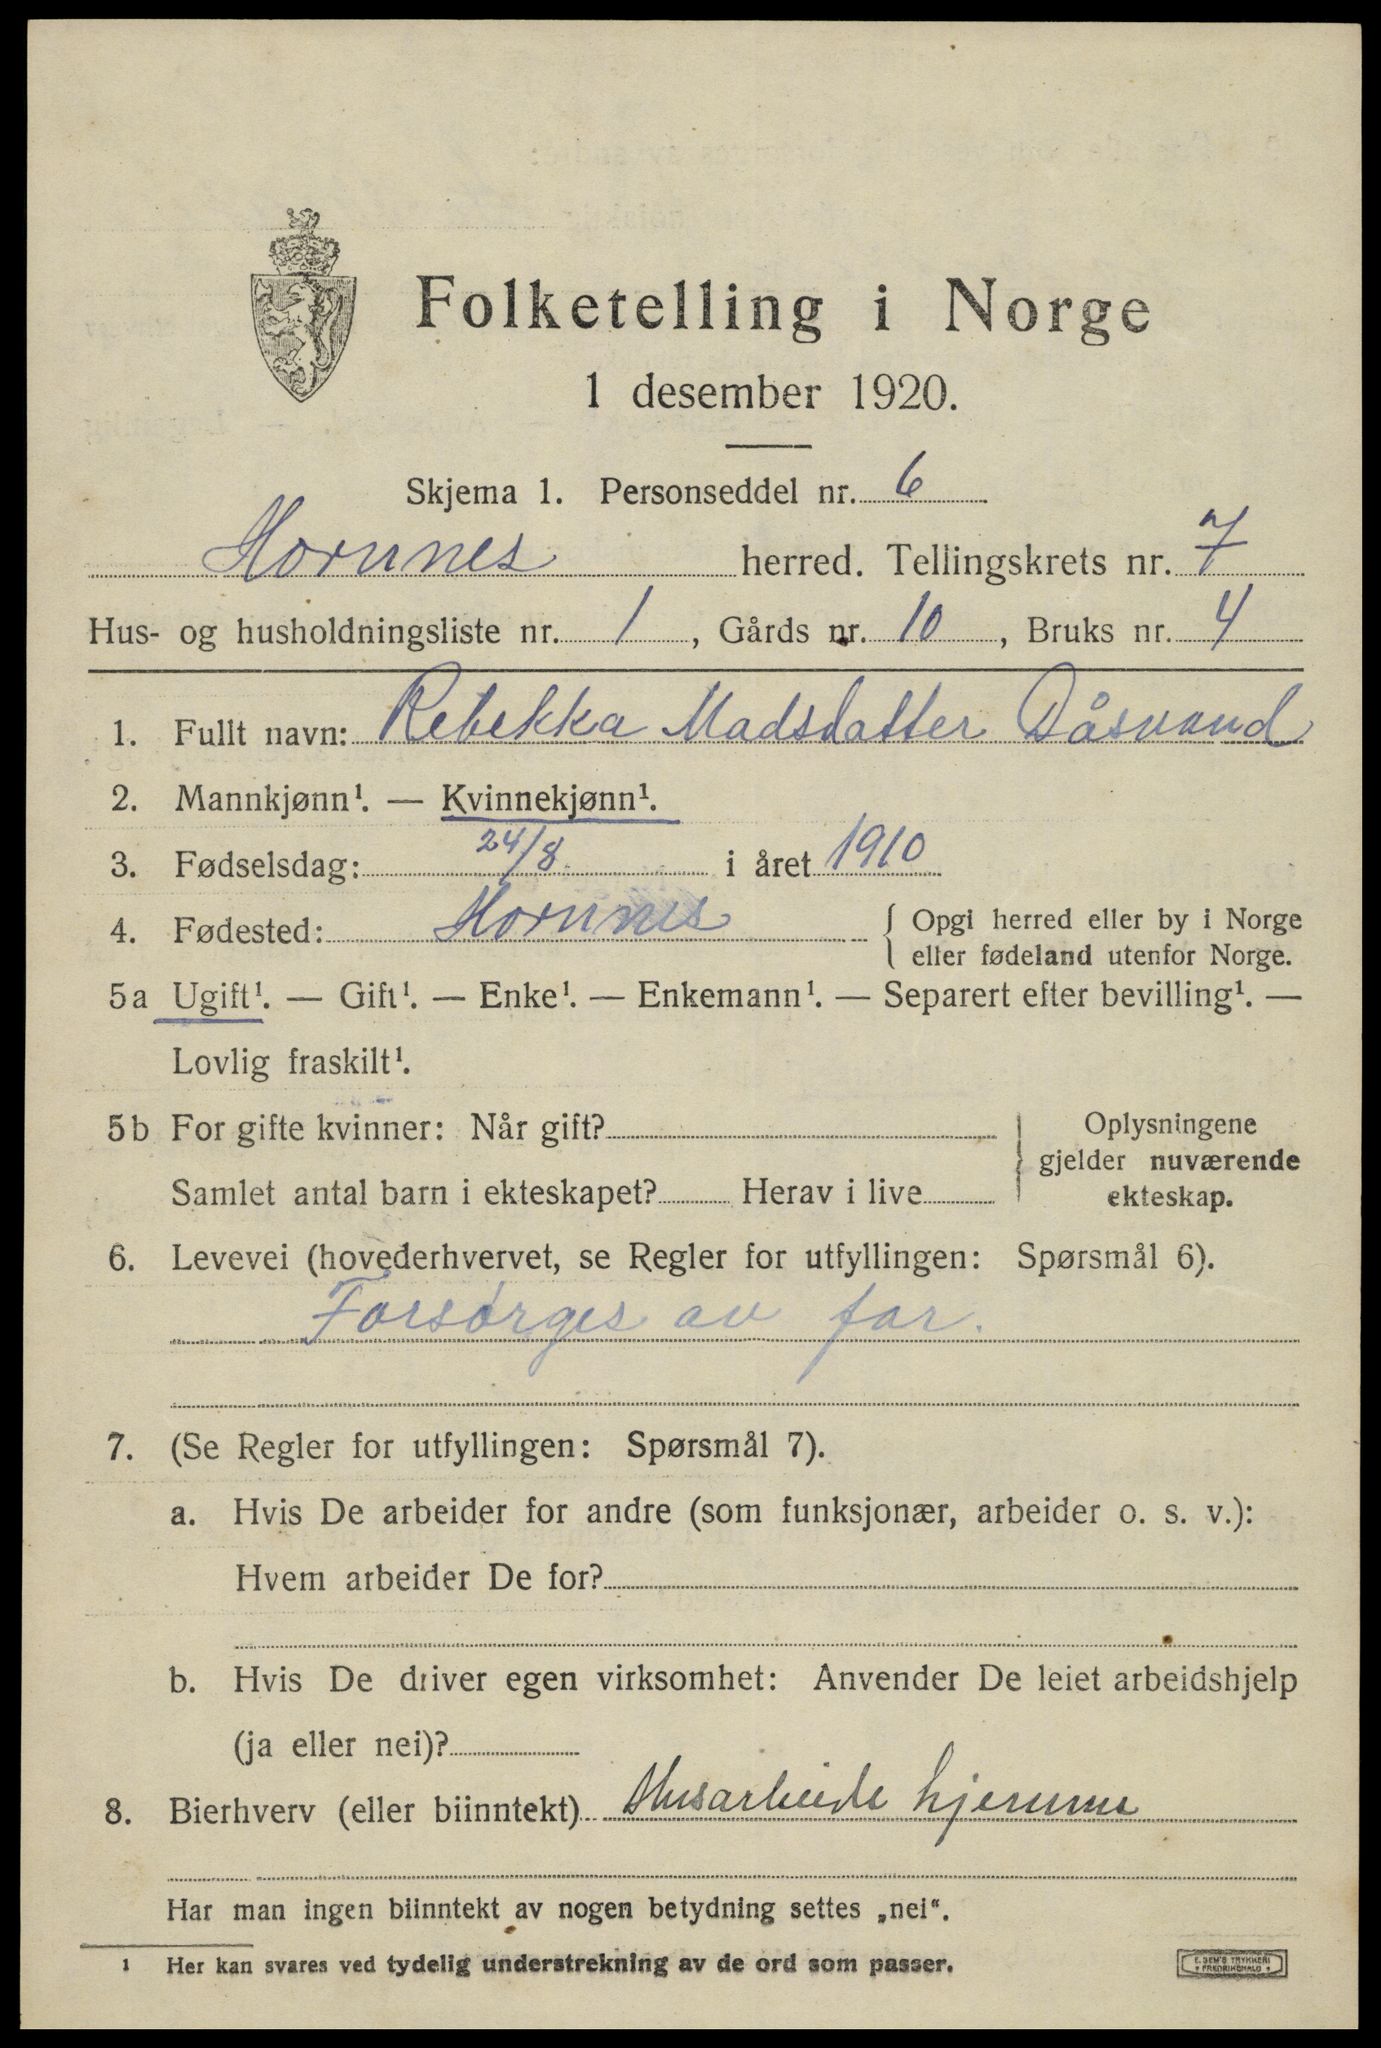 Folketelling i Norge
1 desember 1920.
Skjema 1. Personseddel nr. 6
Hornnes herred. Tellingskrets nr. 7
Hus- og husholdningsliste nr. 1, Gårds nr. 10, Bruks nr. 4
1. Fullt navn: Rebekka Madsdatter Dåsvand
2. Mannkjønn¹. — Kvinnekjønn¹.
3. Fødselsdag: 24/8 i året 1910
4. Fødested: Hornnes { Opgi herred eller by i Norge
eller fødeland utenfor Norge.
5a Ugift¹. — Gift¹. — Enke¹. — Enkemann¹. — Separert efter bevilling¹. —
Lovlig fraskilt¹.
5b For gifte kvinner: Når gift? } Oplysningene
gjelder nuværende
Samlet antal barn i ekteskapet? Herav i live ekteskap.
6. Levevei (hovederhvervet, se Regler for utfyllingen: Spørsmål 6).
Forsørges av far.
7. (Se Regler for utfyllingen: Spørsmål 7).
a. Hvis De arbeider for andre (som funksjonær, arbeider o. s. v.):
Hvem arbeider De for?
b. Hvis De driver egen virksomhet: Anvender De leiet arbeidshjelp
(ja eller nei)?
8. Bierhverv (eller biinntekt) Husarbeide hjemme
Har man ingen biinntekt av nogen betydning settes „nei“.
¹ Her kan svares ved tydelig understrekning av de ord som passer.
E. SEM'S TRYKKERI
FREDRIKSHALD